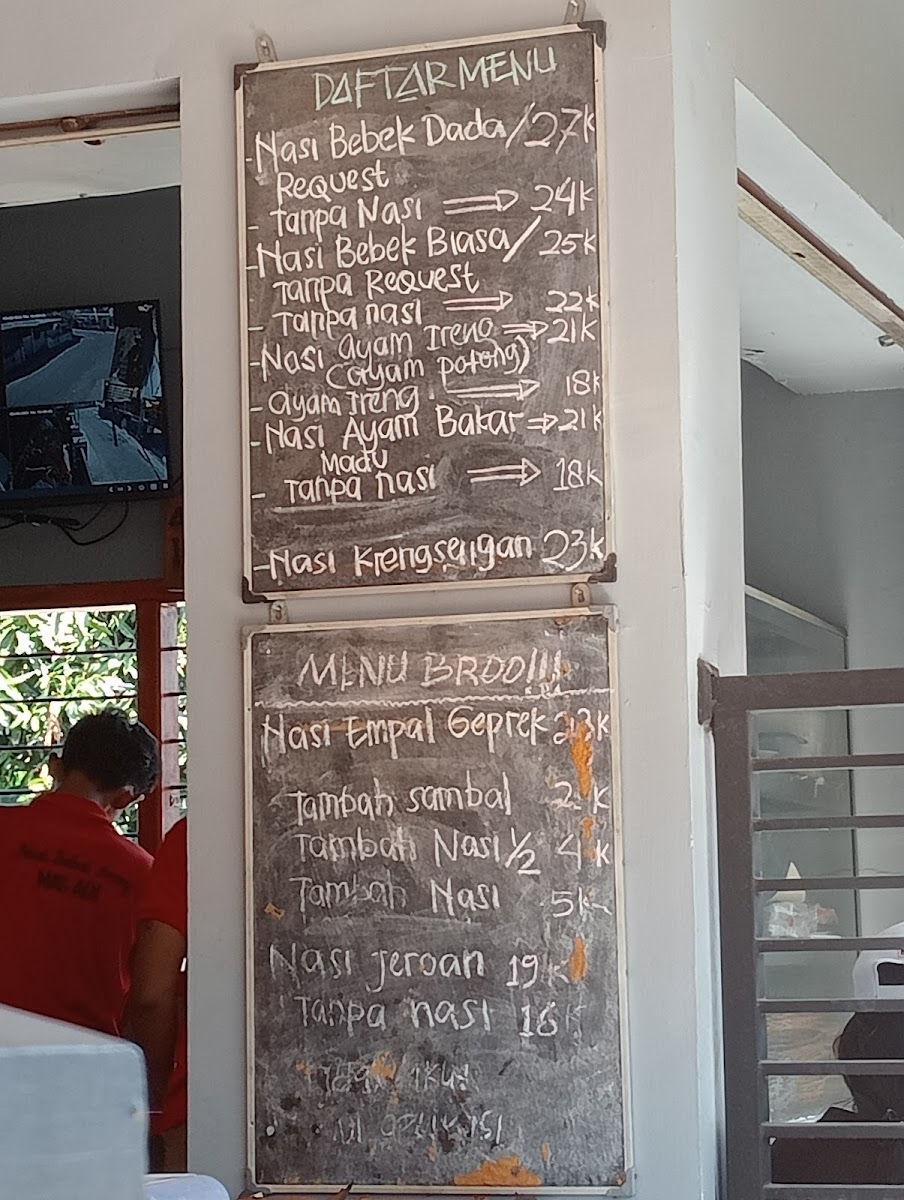 DAFTAR MENU
-Nasi Bebek Dada/27k
Request
- Tanpa Nasi ⇒ 24k
-Nasi Bebek Biasa/ 25k
Tanpa Request
- Tanpa nasi ⇒ 22k
-Nasi ayam Ireng ⇒ 21k
(ayam potong)
- ayam Ireng ⇒ 18k
-Nasi Ayam Bakar ⇒ 21k
Madu
- Tanpa nasi ⇒ 18k
-Nasi Krengsengan 23k
MENU BROO!!!
Nasi Empal Geprek 23k
Tambah sambal 2k
Tambah Nasi 1/2 4k
Tambah Nasi 5k
Nasi jeroan 19k
Tanpa nasi 16k